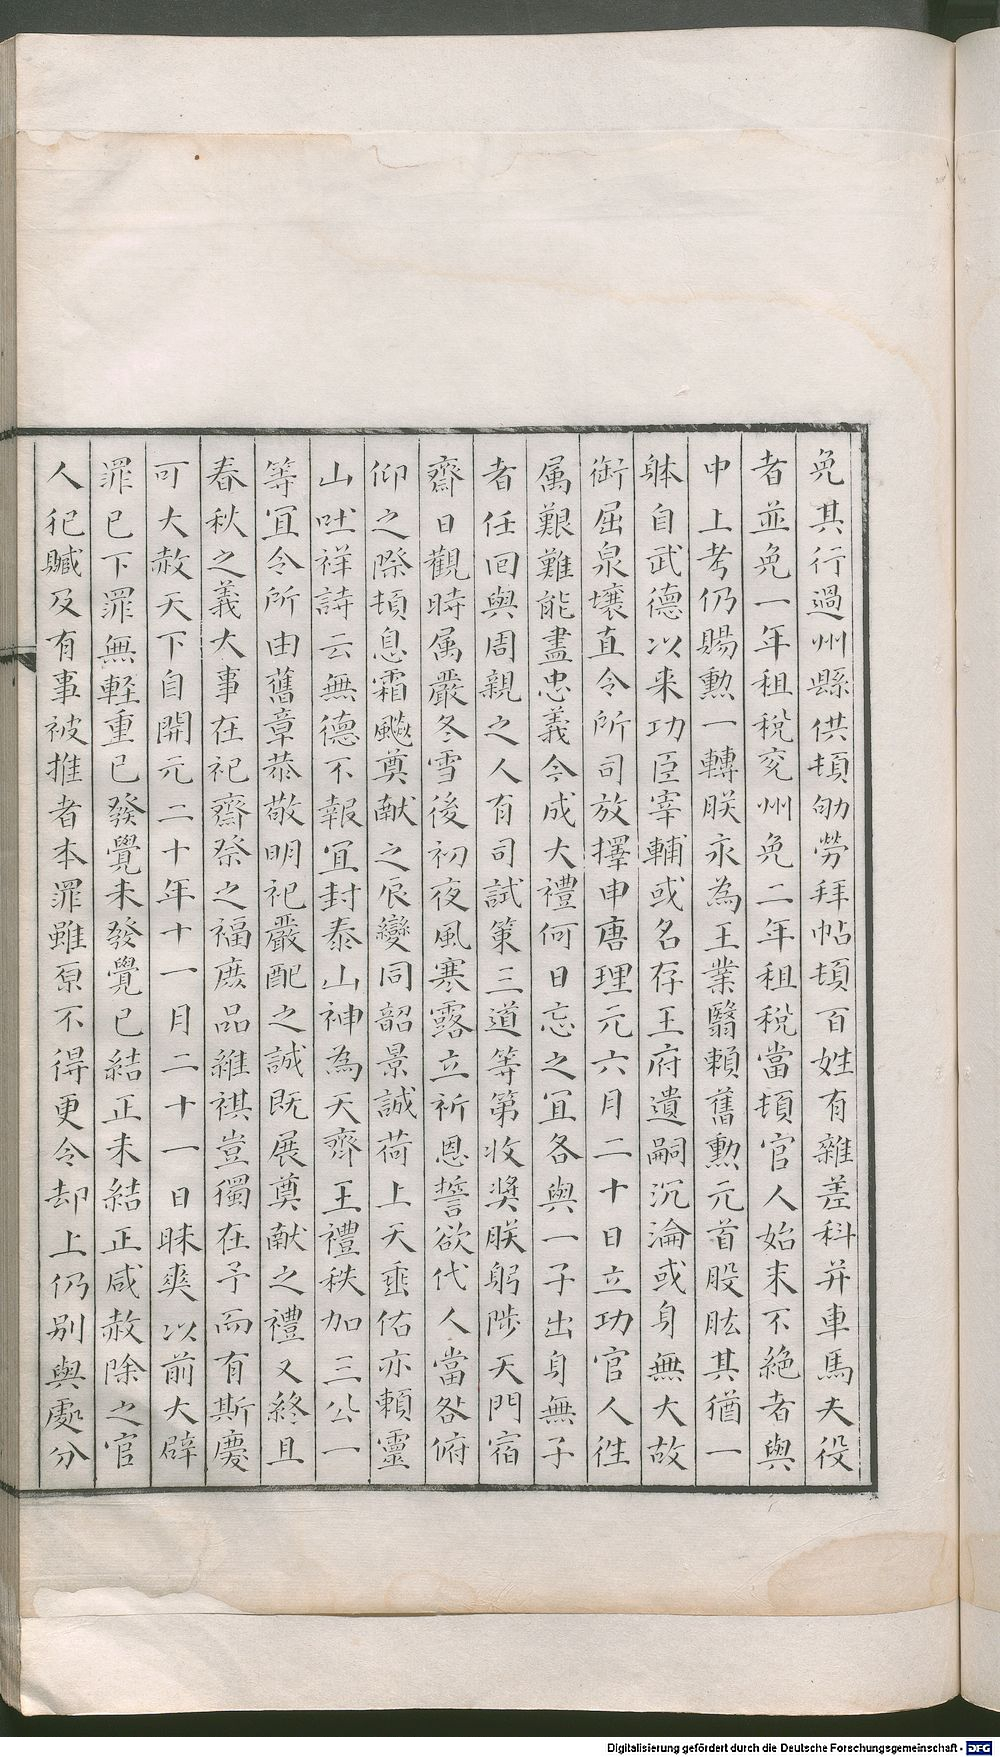 免其行過州縣供頓劬勞拜帖頓百姓有雜差科并車馬夫役
者並免一年租稅兖州免二年租稅當頓官人始末不絕者與
中上考仍賜勲一轉朕永為王業翳賴舊勲元首股肱其猶一
躰自武德以来功臣宰輔或名存王府遺嗣沉淪或身無大故
衘屈泉壤直令所司放擇申唐理元六月二十日立功官人徃
属艱難能盡忠義今成大禮何日忘之宜各與一子出身無子
者任回與周親之人有司試策三道等第收奬朕躬陟天門宿
齋日觀時属嚴冬雪後初夜風寒露立祈恩誓欲代人當咎俯
仰之際頓息霜飈奠献之辰變同韶景誠荷上天垂佑亦賴靈
山吐祥詩云無德不報宜封泰山神為天齊王禮秩加三公一
等宜令所由舊章恭敬明祀嚴配之誠既展奠献之禮又終且
春秋之義大事在祀齋祭之福庶品維祺豈獨在予而有斯慶
可大赦天下自開元二十年十一月二十一日昧爽以前大辟
罪已下罪無軽重已發覺未發覺已結正未結正咸赦除之官
人犯贓及有事被推者本罪雖原不得更令却上仍别與處分
Digitalisierung gefördert durch die Deutsche Forschungsgemeinschaft - DFG